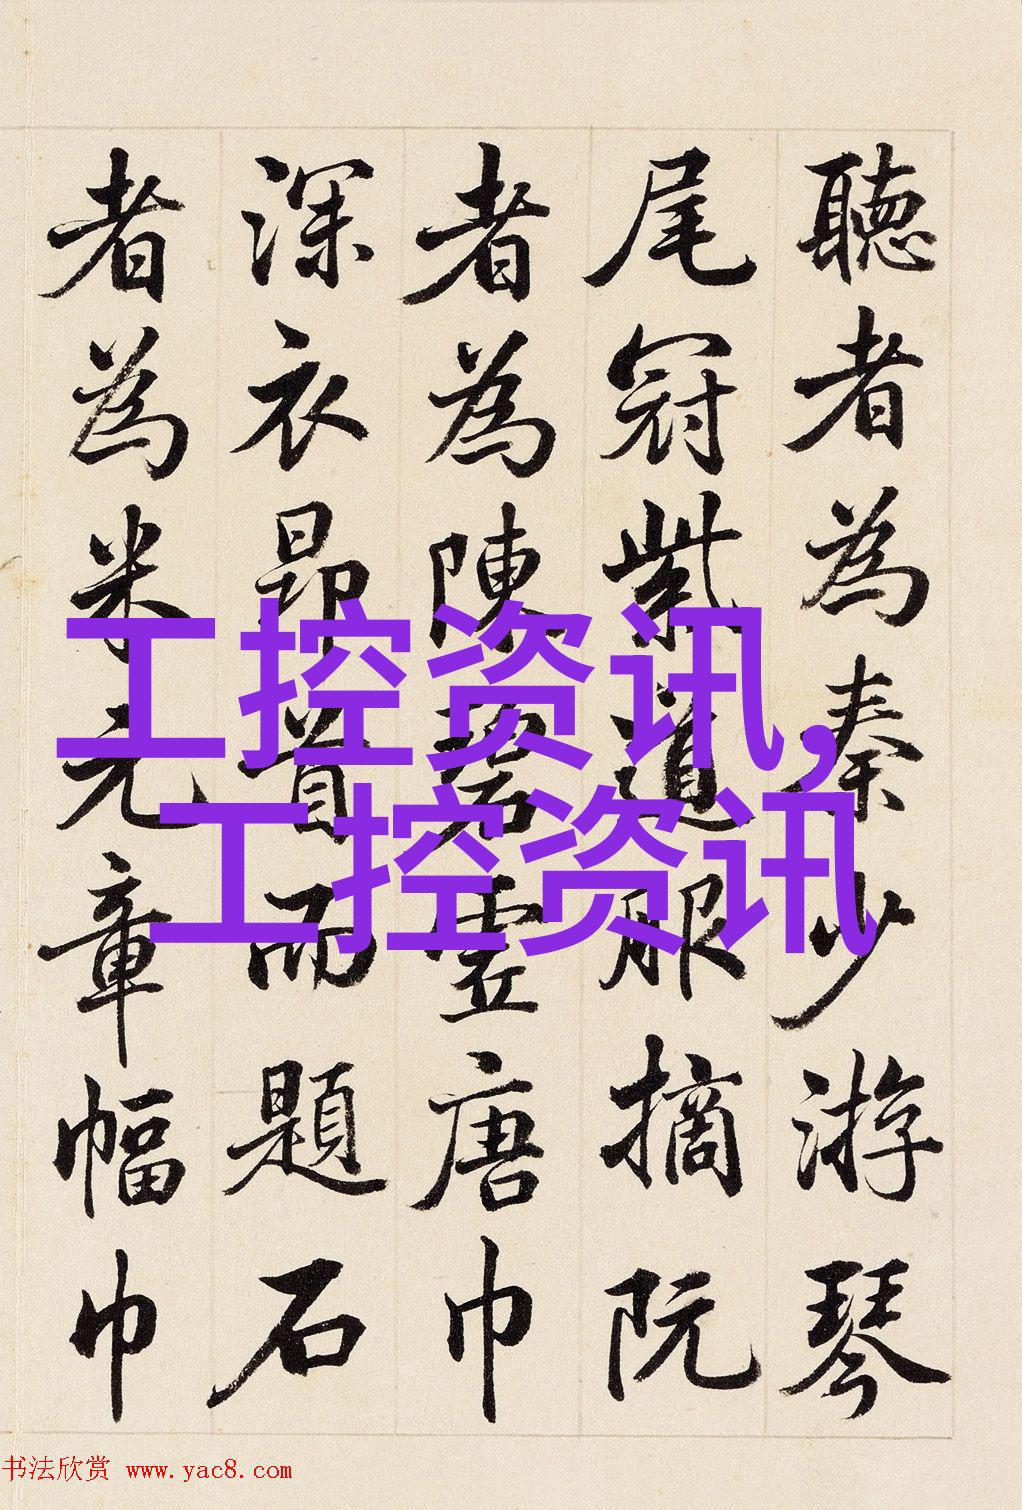 聽者為秦少游琴
尾冠紫道服摘阮
者為陳碧虛唐巾
深衣昂首而題石
者為米元章幅巾
工控资讯,
工控资讯
书法欣赏 www.yac8.com